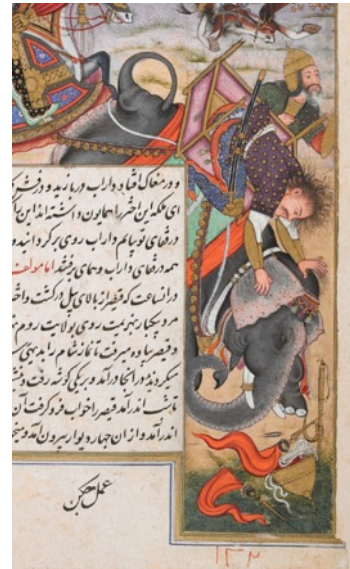 و در مغاک افتاد و داراب دریازید و درفش
ای ملکه این را همایون داشته اند این
در قفای تو بیایم داراب روی برگردانید و
همه در قفای داراب و همای برفتند اما مولف
در ان ساعت که قیصر از بالای پیل درگشت
یکبار بهزیمت روی بولایت روم
و قیصر پیاده میرفت تا نماز شام را بدیهی
میکردند در انجا درآمد و بر یکی گوشه رفت و
تا شب اندر آمد قیصر را خواب فرو گرفت آن
اندر آمد و از ان چهار دیوار بیرون آمد و
عمل
۱۳۲